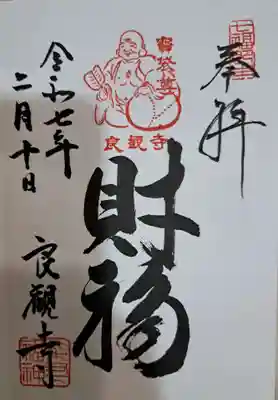 奉拝
寶袋尊
良観寺
財福
令和七年
二月十日
良觀寺